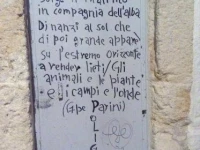 in compagnia dell'alba
Dinanzi al sol che
di poi grande appar
su l'estremo orizzonte
a render lieti/Gli
animali e le piante
e li campi e l'onde
(G.pe Parini)
P
O
L
I
G